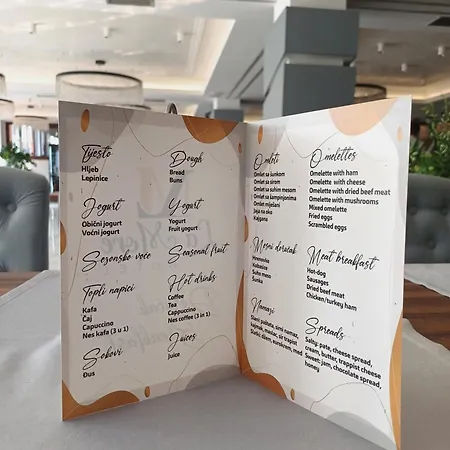 Tijesto
Hljeb
Lepinice
Jogurt
Obični jogurt
Voćni jogurt
Sezonsko voće
Topli napici
Kafa
Čaj
Cappuccino
Nes kafa (3 u 1)
Sokovi
Đus
Dough
Bread
Buns
Yogurt
Yogurt
Fruit yogurt
Seasonal fruit
Hot drinks
Coffee
Tea
Cappuccino
Nes coffee (3 in 1)
Juices
Juice
Omleti
Omlet sa šunkom
Omlet sa sirom
Omlet sa suhim mesom
Omlet sa šampinjonima
Omlet miješani
Jaja na oko
Kajgana
Mesni doručak
Hrenovke
Kobasice
Suho meso
Šunka
Namazi
Slani: pašteta, sirni namaz,
kajmak, maslac, sir trapist
Slatki: džem, eurokrem, med
Omelettes
Omelette with ham
Omelette with cheese
Omelette with dried beef meat
Omelette with mushrooms
Mixed omelette
Fried eggs
Scrambled eggs
Meat breakfast
Hot-dog
Sausages
Dried beef meat
Chicken/turkey ham
Spreads
Salty: pate, cheese spread,
cream, butter, trappist cheese
Sweet: jam, chocolate spread,
honey